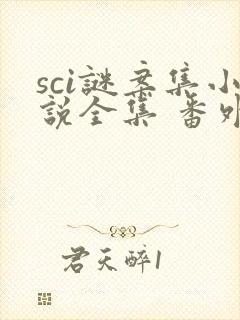 sci謎案集小
説全集 番外
君天醉1